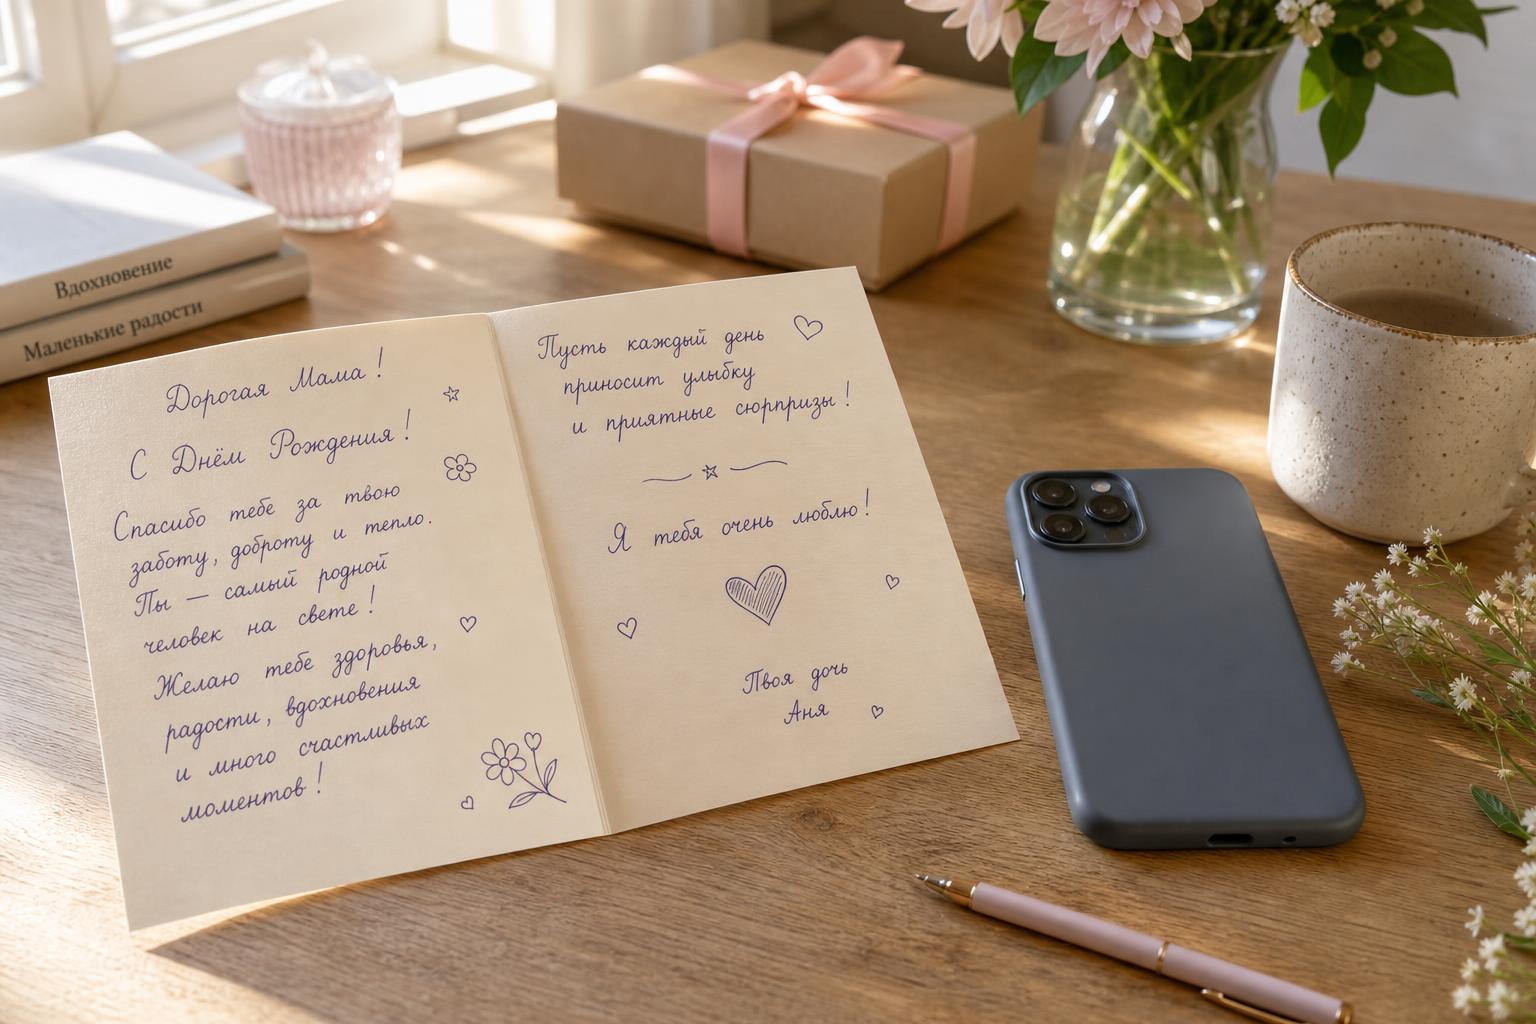 Вдохновение
Маленькие радости
Дорогая Мама!
С Днём Рождения!
Спасибо тебе за твою
заботу, доброту и тепло.
Ты — самый родной
человек на свете!
Желаю тебе здоровья,
радости, вдохновения
и много счастливых
моментов!
Пусть каждый день
приносит улыбку
и приятные сюрпризы!
Я тебя очень люблю!
Твоя дочь
Аня